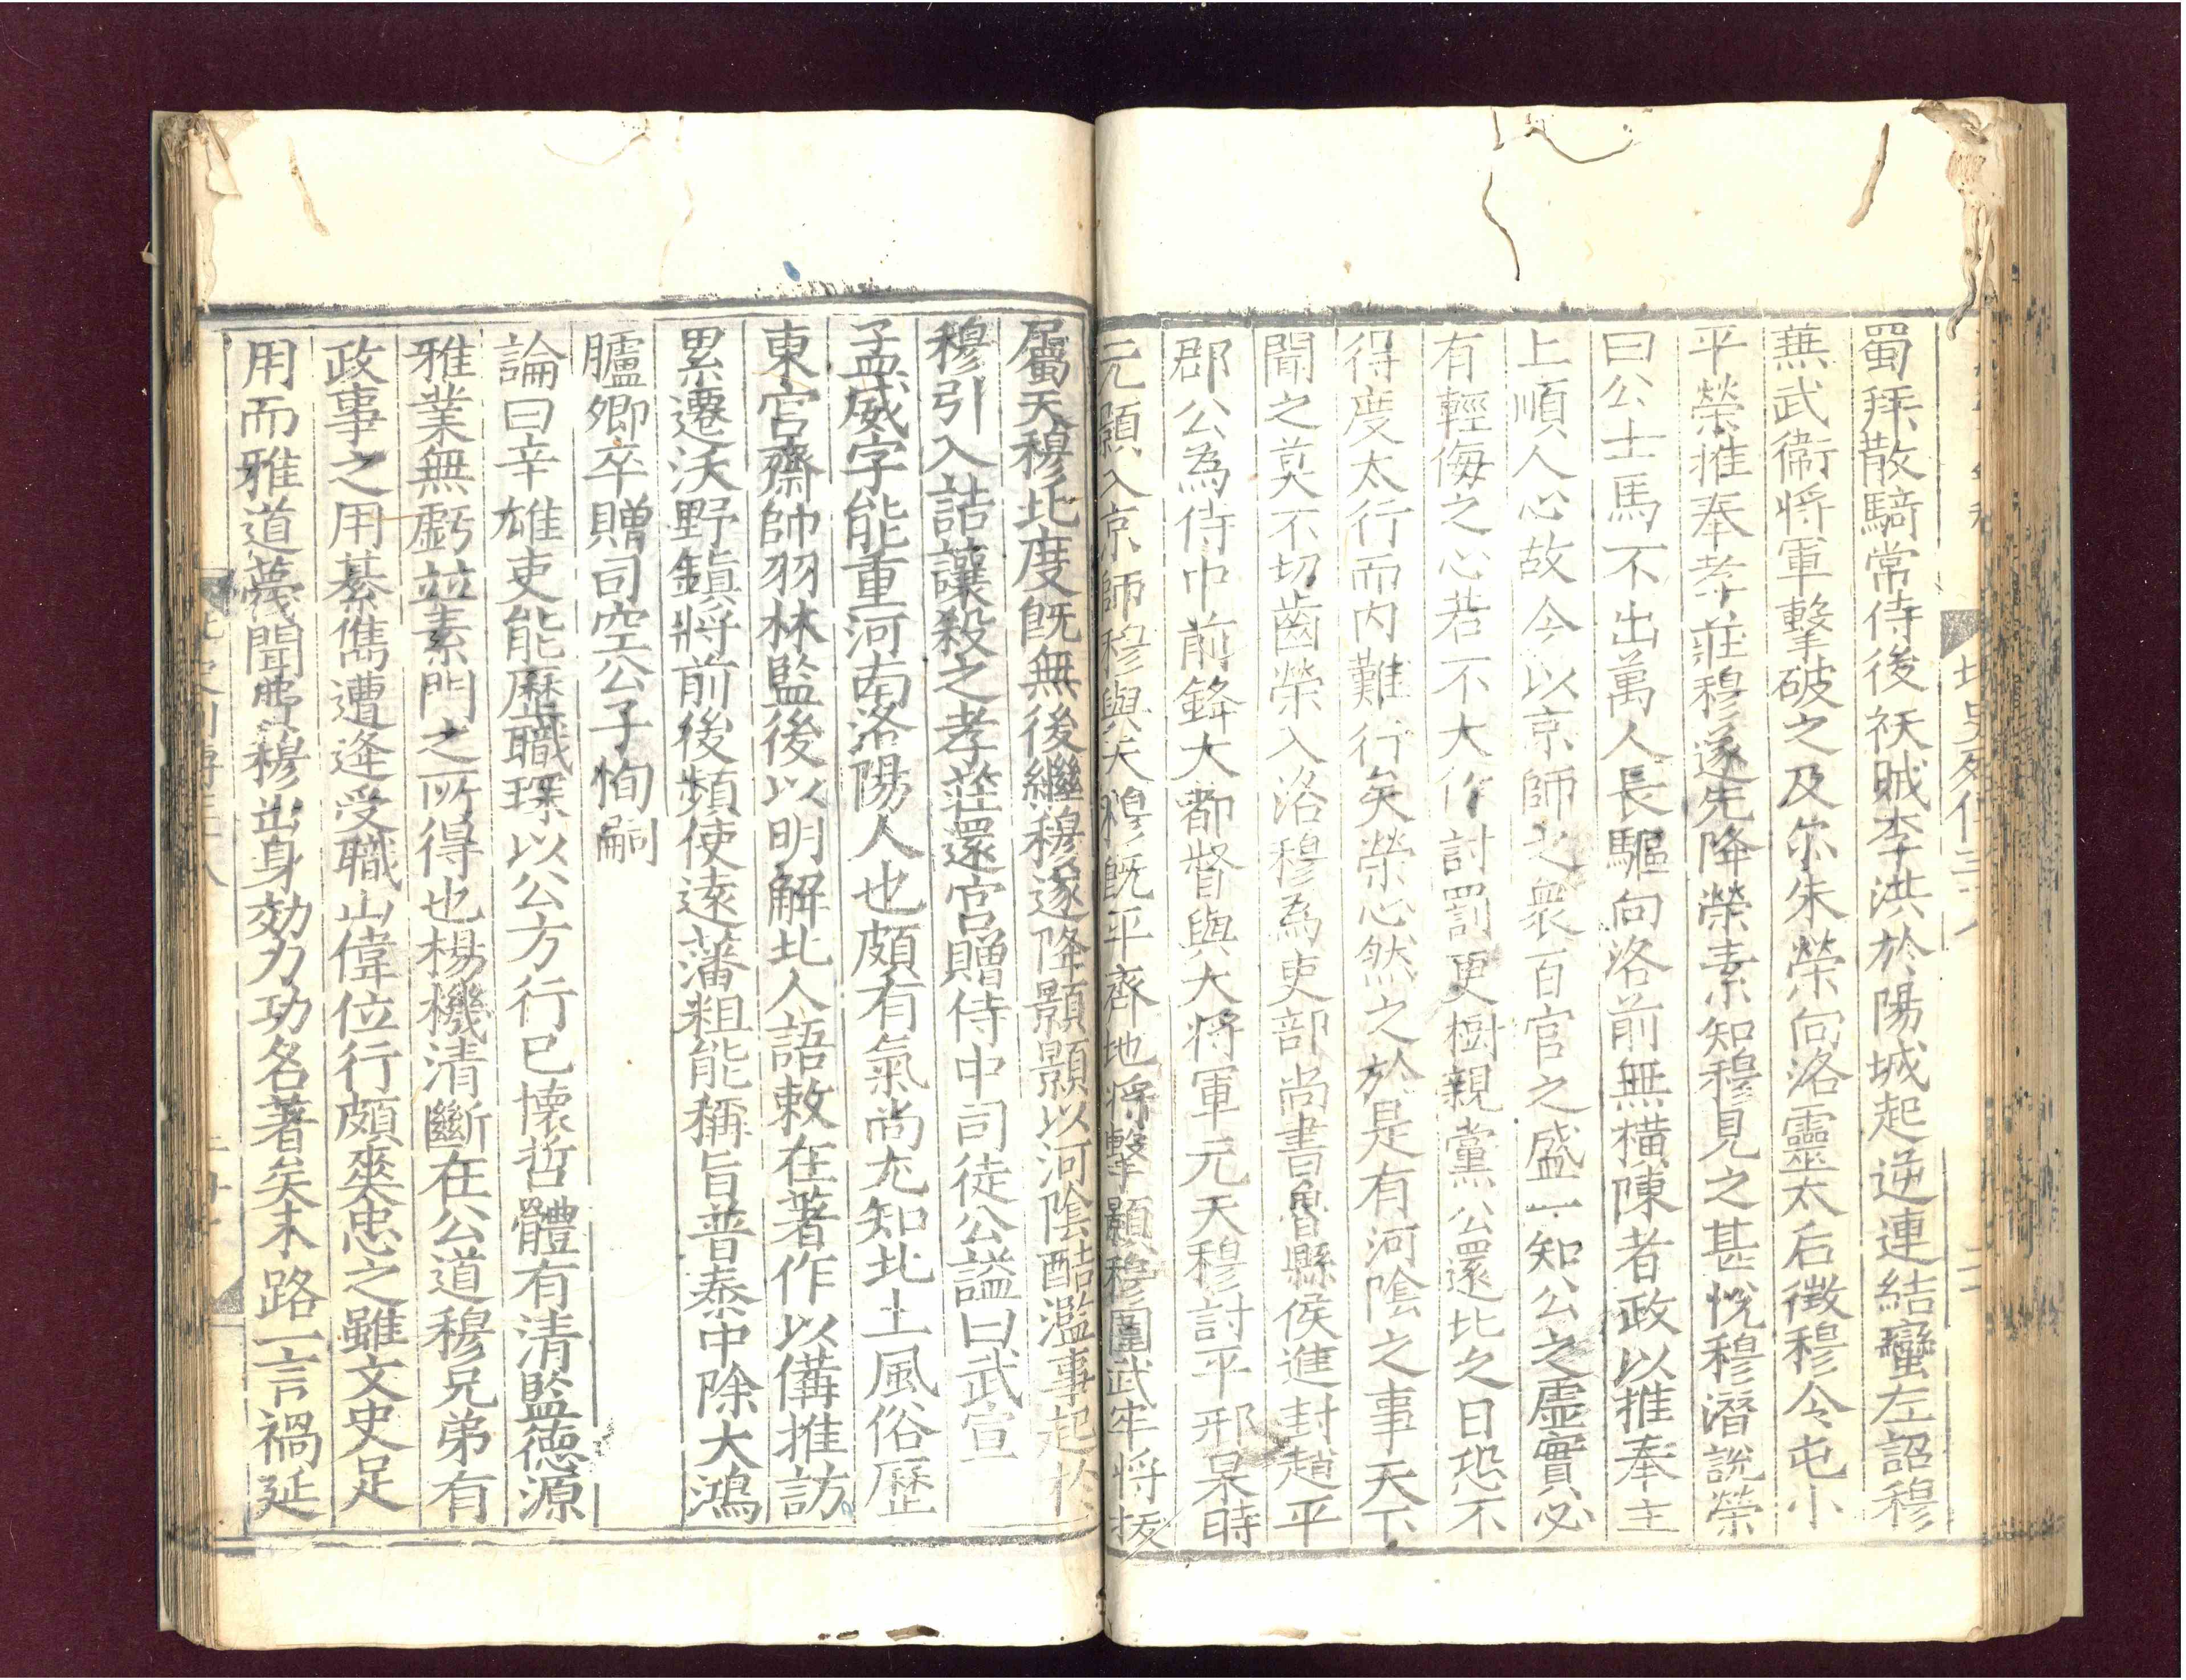 蜀拜散騎常侍後祆賊李洪於陽城起逆連結蠻左詔穆
蕪武衛將軍擊破之及尒朱榮向洛靈太后徵穆令屯小
平榮推奉孝莊穆遂先降榮素知穆見之甚悅穆潛說榮
曰公士馬不出萬人長驅向洛前無橫陳者政以推奉主
上順人心故今以京師之衆百官之盛一知公之虛實必
有輕侮之心若不大作討罰更樹親黨公還北之日恐不
得度太行而內難行矣榮心然之於是有河陰之事天下
聞之莫不切齒榮入洛穆為吏部尚書魯縣侯進封趙平
郡公為侍中前鋒大都督與大將軍元天穆討平邢杲時
元顥入京師穆與天穆旣平齊地將擊顥穆圍武牢將拔
屬天穆北度旣無後繼穆遂降顥顥以河陰酷濫事起於
穆引入詰讓殺之孝莊還宮贈侍中司徒公謚曰武宣
孟威字能重河南洛陽人也頗有氣尚尤知北土風俗歷
東宮齋帥羽林監後以明解北人語敕在著作以備推訪
累遷沃野鎮將前後頻使遠藩粗能稱旨普泰中除大鴻
臚卿卒贈司空公子恂嗣
論曰辛雄吏能歷職琛以公方行己懷哲體有清監德源
雅業無虧竝素門之所得也楊機清斷在公道穆兄弟有
政事之用綦儁遭逢受職山偉位行頗爽忠之雖文史足
用而雅道蔑聞費穆出身効力功名著矣末路一言禍延